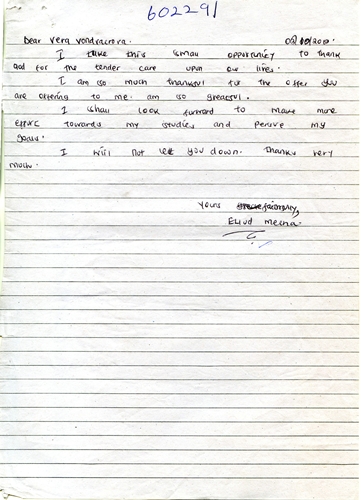 602291
Dear Vera Vondracrova. 02
I take this small opportunity to thank
God for the tender care upon our lives.
I am so much thankful for the offer you
are offering to me. am so greatful.
I shall look forward to make more
effort towards my studies and my
goals.
I will not let you down. Thanks very
much.
Yours
Eliud